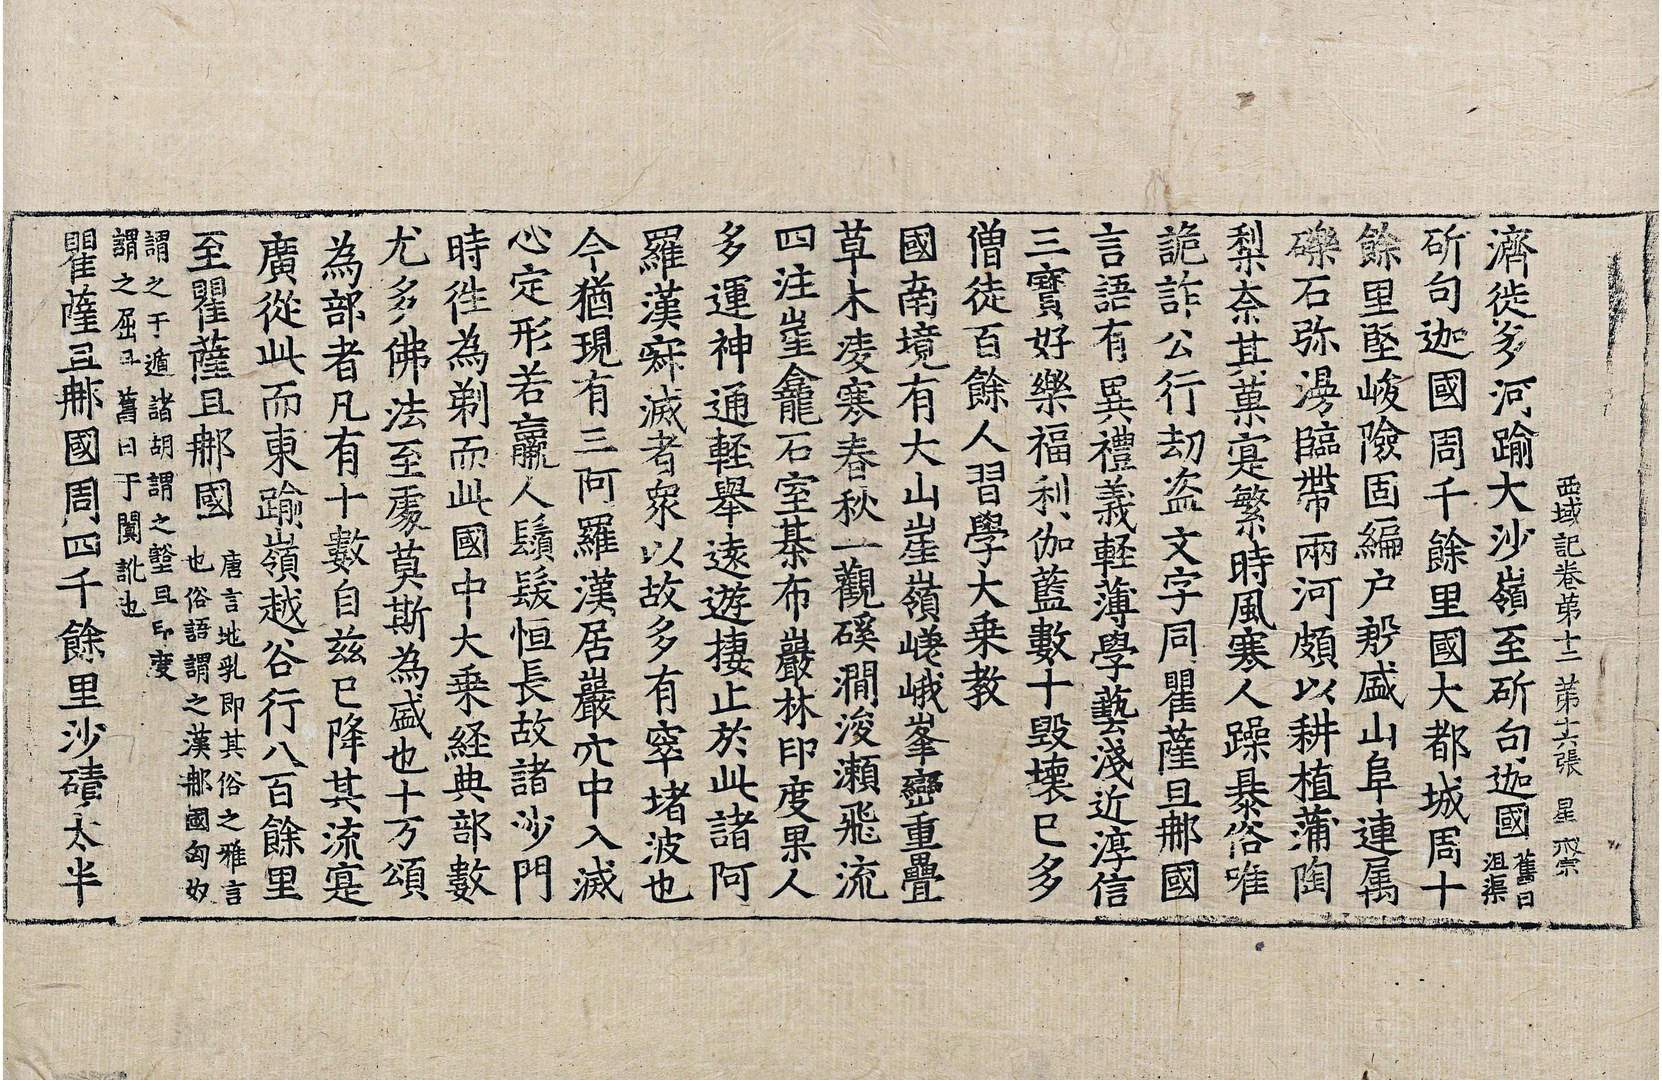 西域記卷第十二 第十六張 星
濟徙多河踰大沙嶺至斫句迦國舊曰沮渠
斫句迦國周千餘里國大都城周十
餘里堅峻險固編户殷盛山阜連属
礫石弥漫臨帶兩河頗以耕植蒲陶
梨柰其菓寔繁時風寒人躁暴俗唯
詭詐公行劫盗文字同瞿薩旦𨙻國
言語有異禮義輕薄學藝淺近淳信
三寶好樂福利伽藍數十毀壞已多
僧徒百餘人習學大乗教
國南境有大山崖嶺嵯峨峯巒重疊
草木凌寒春秋一觀磎澗浚瀬飛流
四注崖龕石室棊布巖林印度果人
多運神通輕舉遠遊捿止於此諸阿
羅漢寂滅者衆以故多有窣堵波也
今猶現有三阿羅漢居巖穴中入滅
心定形若羸人鬚髮恒長故諸沙門
時徃為剃而此國中大乗経典部數
尤多佛法至處莫斯為盛也十万頌
為部者凡有十數自兹已降其流寔
廣從此而東踰嶺越谷行八百餘里
至瞿薩旦𨙻國唐言地乳即其俗之雅言
也俗語謂之漢𨙻國匈奴
謂之于遁諸胡謂之豁旦印度
謂之屈丹舊曰于闐訛也
瞿薩旦𨙻國周四千餘里沙磧太半